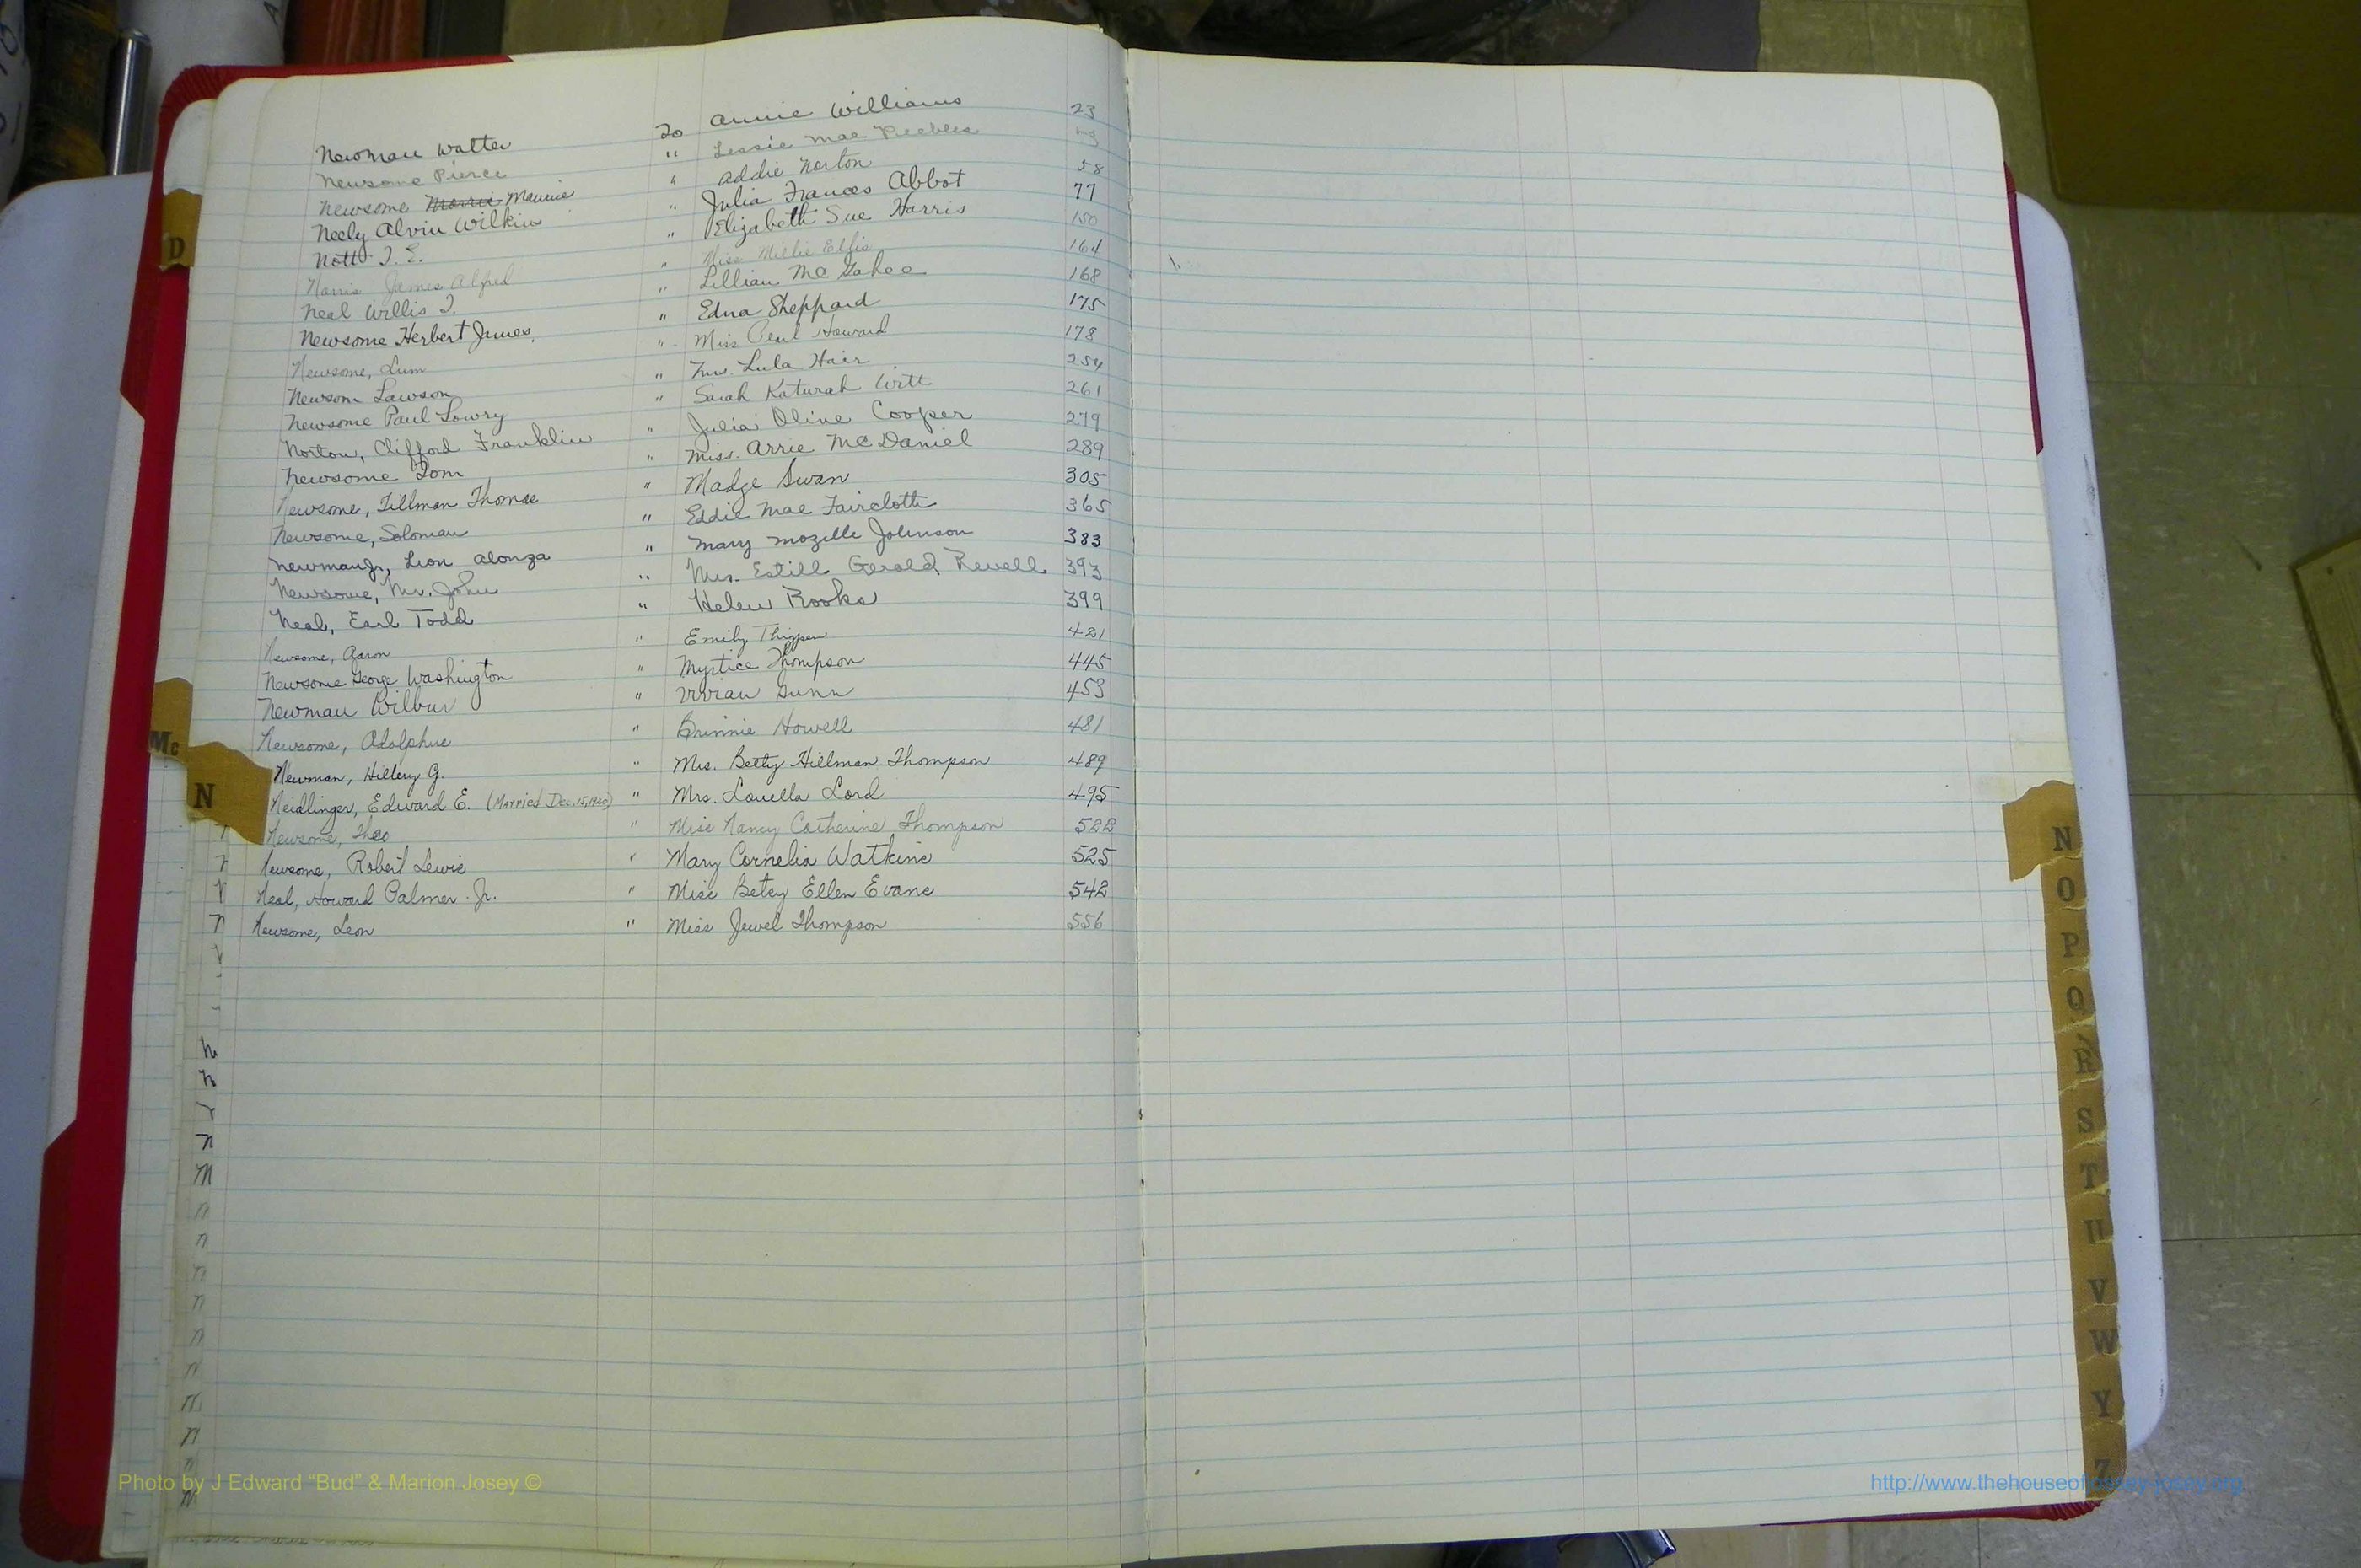 Newman Walter To Annie Williams 23
Newsome Pierce " Lessie Mae Peebles
Newsome Morris Maurice " Addie Norton 58
Neely Alvin Wilkin " Julia Frances Abbot 77
Nott T. E. " Elizabeth Sue Harris 150
Norris James Alfred " Miss Millie Ellis 164
Neal Willis J. " Lillian McGahee 168
Newsome Herbert James " Edna Sheppard 175
Newsome, Lum " Miss Pearl Howard 178
Newsom Lawson " Mrs. Lula Hair 254
Newsome Paul Lowry " Sarah Katurah Witt 261
Norton, Clifford Franklin " Julia Oline Cooper 279
Newsome Tom " Miss. Arrie McDaniel 289
Newsome, Tillman Thomas " Madge Swan 305
Newsome, Soloman " Eddie Mae Faircloth 365
Newman Jr, Leon Alonza " Mary Mozelle Johnson 383
Newsome, Mr. John " Mrs. Estill Gerald Revell 393
Neal, Earl Todd " Helen Rooks 399
Newsome, Aaron " Emily Thigpen 421
Newsome George Washington " Myrtice Thompson 445
Newman Wilbur " Vivian Gunn 453
Newsome, Adolphus " Brinnie Howell 481
Newman, Hillery G. " Mrs. Betty Hillman Thompson 489
Neidlinger, Edward E. (Married Dec. 15, 1920) " Mrs. Louella Lord 495
Newsome, Theo " Miss Nancy Catherine Thompson 522
Newsome, Robert Lewis " Mary Cornelia Watkins 525
Neal, Howard Palmer Jr. " Miss Betsy Ellen Evans 542
Newsome, Leon " Miss Jewel Thompson 556
D
Mc
N
N
O
P
Q
R
S
T
U
V
W
Y
Z
Photo by J Edward “Bud” & Marion Josey ©
http://www.thehouseofjossey-josey.org